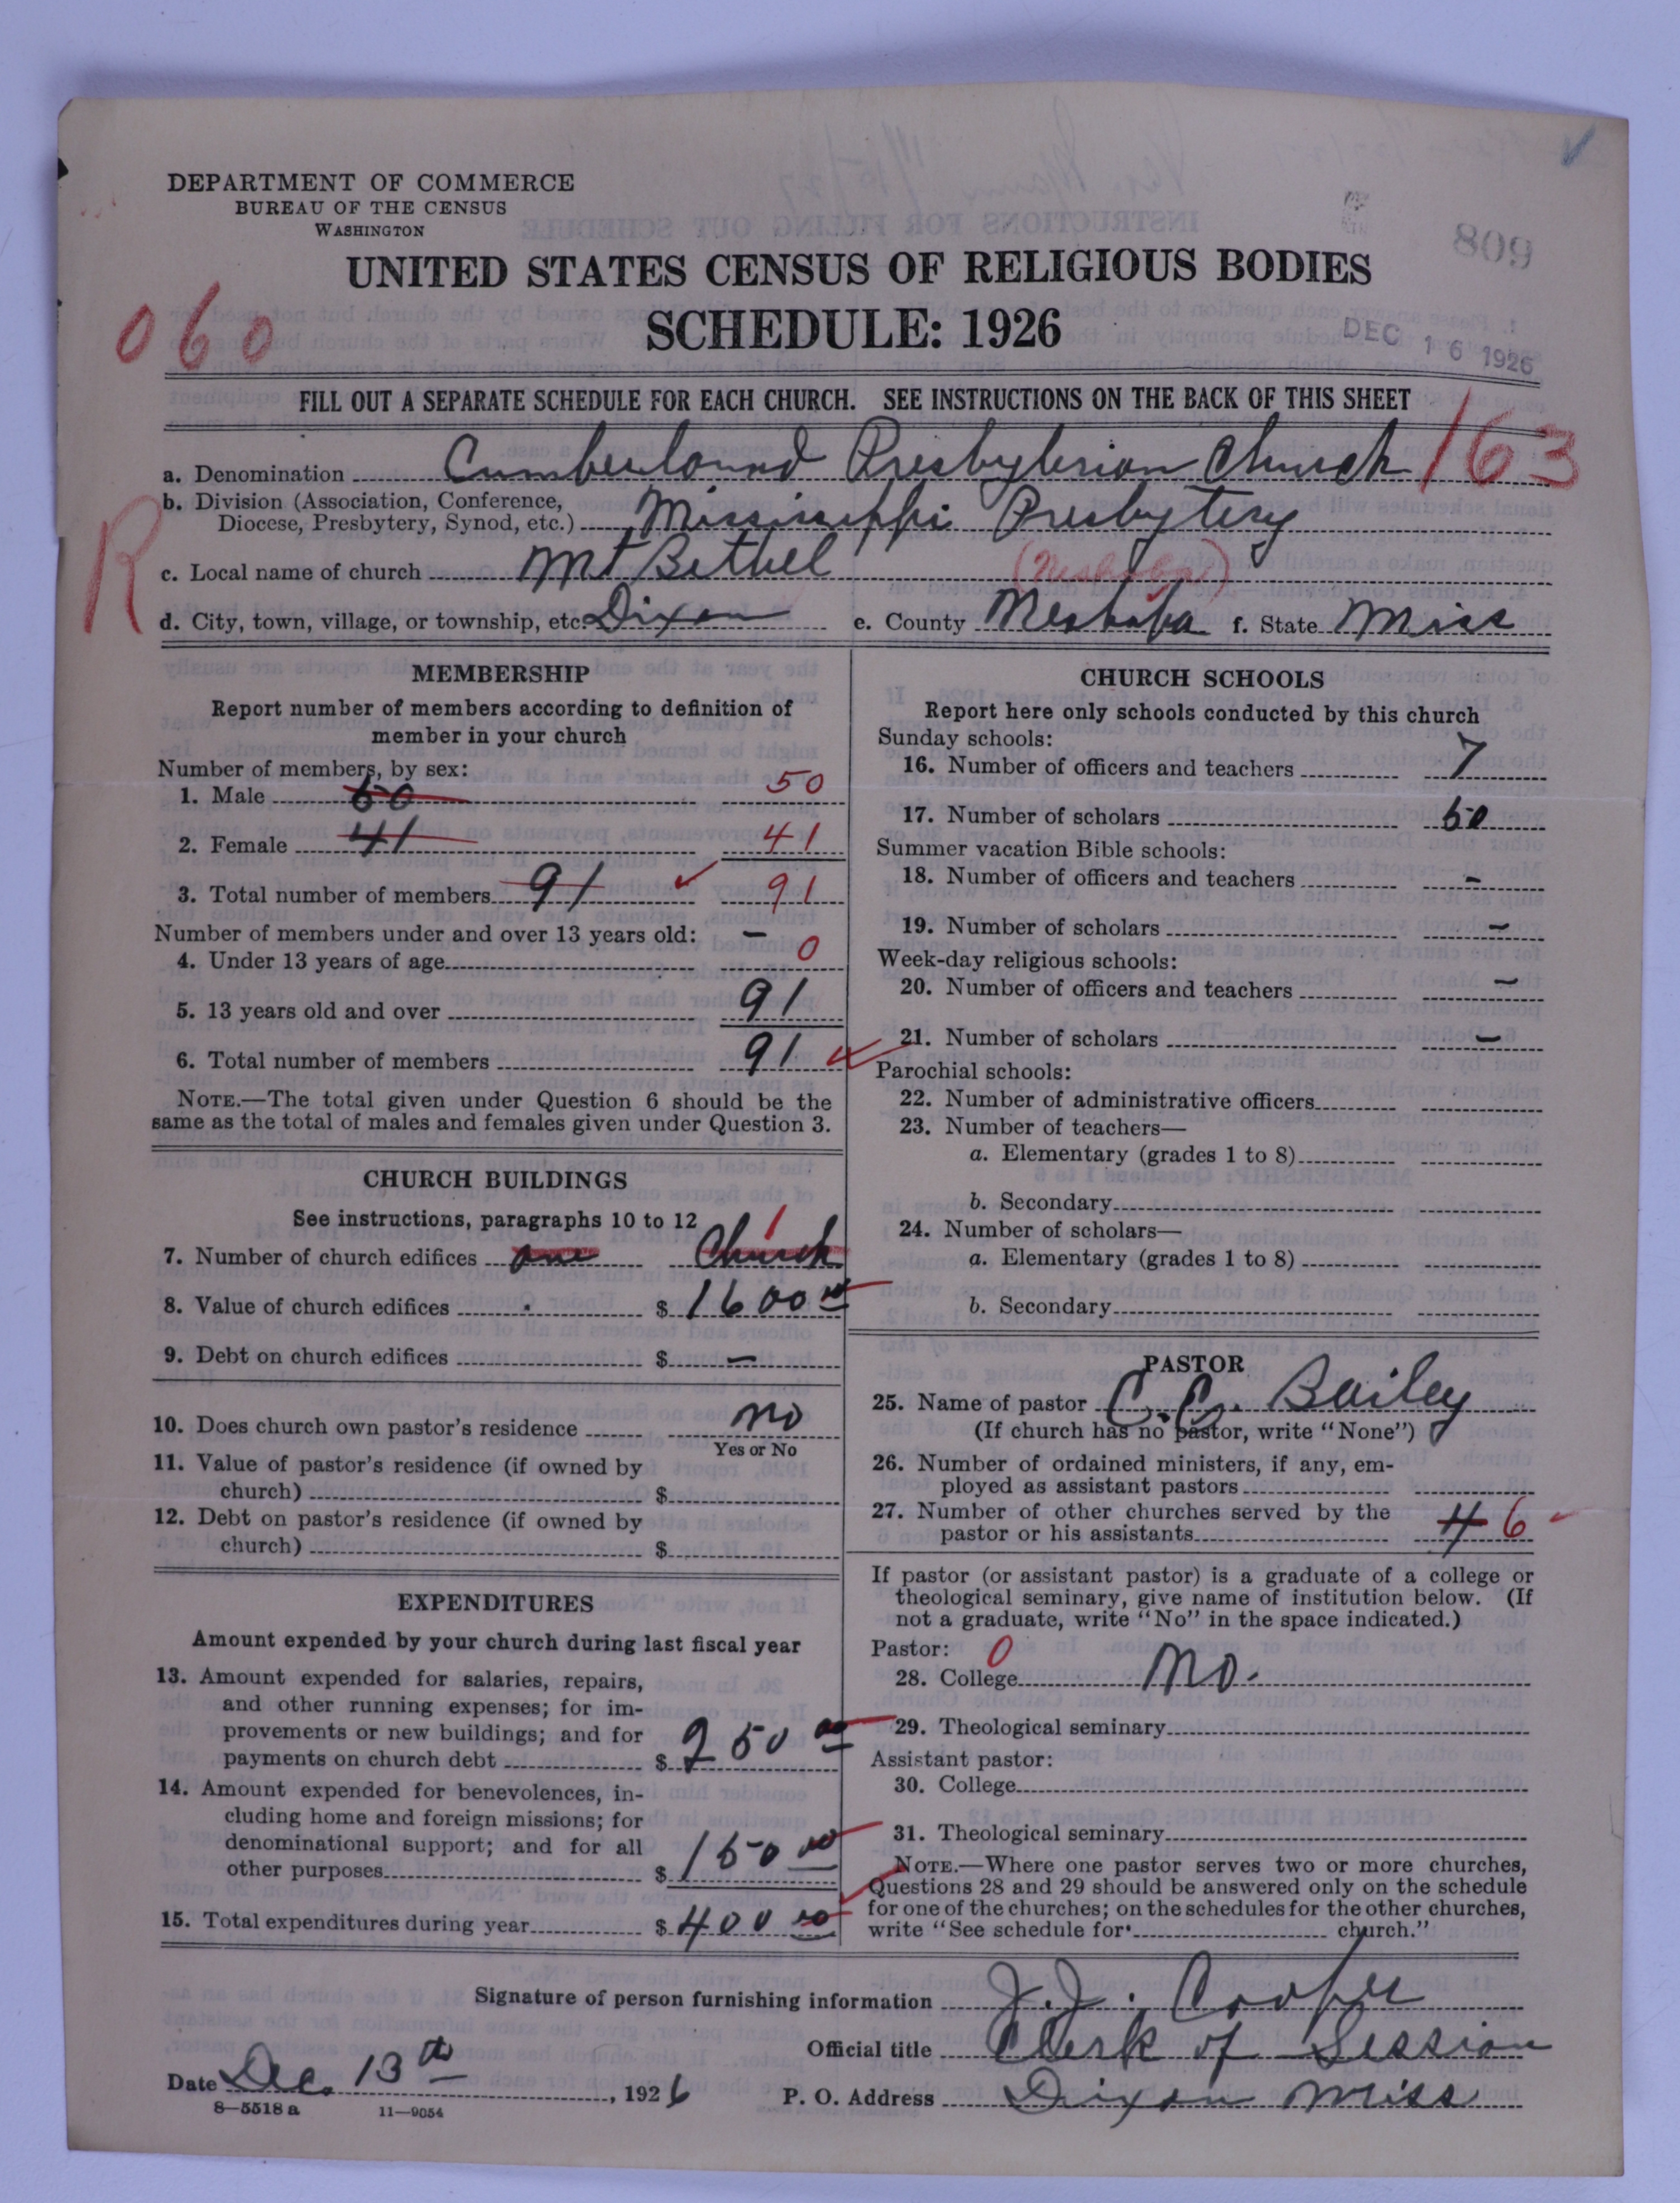 DEPARTMENT OF COMMERCE
BUREAU OF THE CENSUS
WASHINGTON
UNITED STATES CENSUS OF RELIGIOUS BODIES
SCHEDULE: 1926
809
DEC 16 1926
060
FILL OUT A SEPARATE SCHEDULE FOR EACH CHURCH. SEE INSTRUCTIONS ON THE BACK OF THIS SHEET
a. Denomination Cumberland Presbyterian Church 163
b. Division (Association, Conference,
Diocese, Presbytery, Synod, etc.) Mississippi Presbytery
R
c. Local name of church Mt Bethel (Neshoba)
d. City, town, village, or township, etc. Dixon e. County Neshoba f. State Miss
MEMBERSHIP
Report number of members according to definition of
member in your church
Number of members, by sex:
1. Male 50 50
2. Female 41 41
3. Total number of members 91 91
Number of members under and over 13 years old:
4. Under 13 years of age – 0
5. 13 years old and over 91
6. Total number of members 91
NOTE.—The total given under Question 6 should be the
same as the total of males and females given under Question 3.
CHURCH BUILDINGS
See instructions, paragraphs 10 to 12
7. Number of church edifices one Church 1
8. Value of church edifices $ 1600 00
9. Debt on church edifices $ –
10. Does church own pastor's residence no
Yes or No
11. Value of pastor's residence (if owned by
church) $
12. Debt on pastor's residence (if owned by
church) $
EXPENDITURES
Amount expended by your church during last fiscal year
13. Amount expended for salaries, repairs,
and other running expenses; for im-
provements or new buildings; and for
payments on church debt $ 250 00
14. Amount expended for benevolences, in-
cluding home and foreign missions; for
denominational support; and for all
other purposes $ 150 00
15. Total expenditures during year $ 400 00
CHURCH SCHOOLS
Report here only schools conducted by this church
Sunday schools:
16. Number of officers and teachers 7
17. Number of scholars 50
Summer vacation Bible schools:
18. Number of officers and teachers –
19. Number of scholars –
Week-day religious schools:
20. Number of officers and teachers –
21. Number of scholars –
Parochial schools:
22. Number of administrative officers
23. Number of teachers—
a. Elementary (grades 1 to 8)
b. Secondary
24. Number of scholars—
a. Elementary (grades 1 to 8)
b. Secondary
PASTOR
25. Name of pastor C. C. Bailey
(If church has no pastor, write "None")
26. Number of ordained ministers, if any, em-
ployed as assistant pastors
27. Number of other churches served by the
pastor or his assistants 4 6
If pastor (or assistant pastor) is a graduate of a college or
theological seminary, give name of institution below. (If
not a graduate, write "No" in the space indicated.)
Pastor: 0
28. College No.
29. Theological seminary
Assistant pastor:
30. College
31. Theological seminary
NOTE.—Where one pastor serves two or more churches,
Questions 28 and 29 should be answered only on the schedule
for one of the churches; on the schedules for the other churches,
write "See schedule for church."
Signature of person furnishing information J. J. Cooper
Official title Clerk of Session
Date Dec. 13th, 1926 P. O. Address Dixon Miss
8—5518 a 11—9054